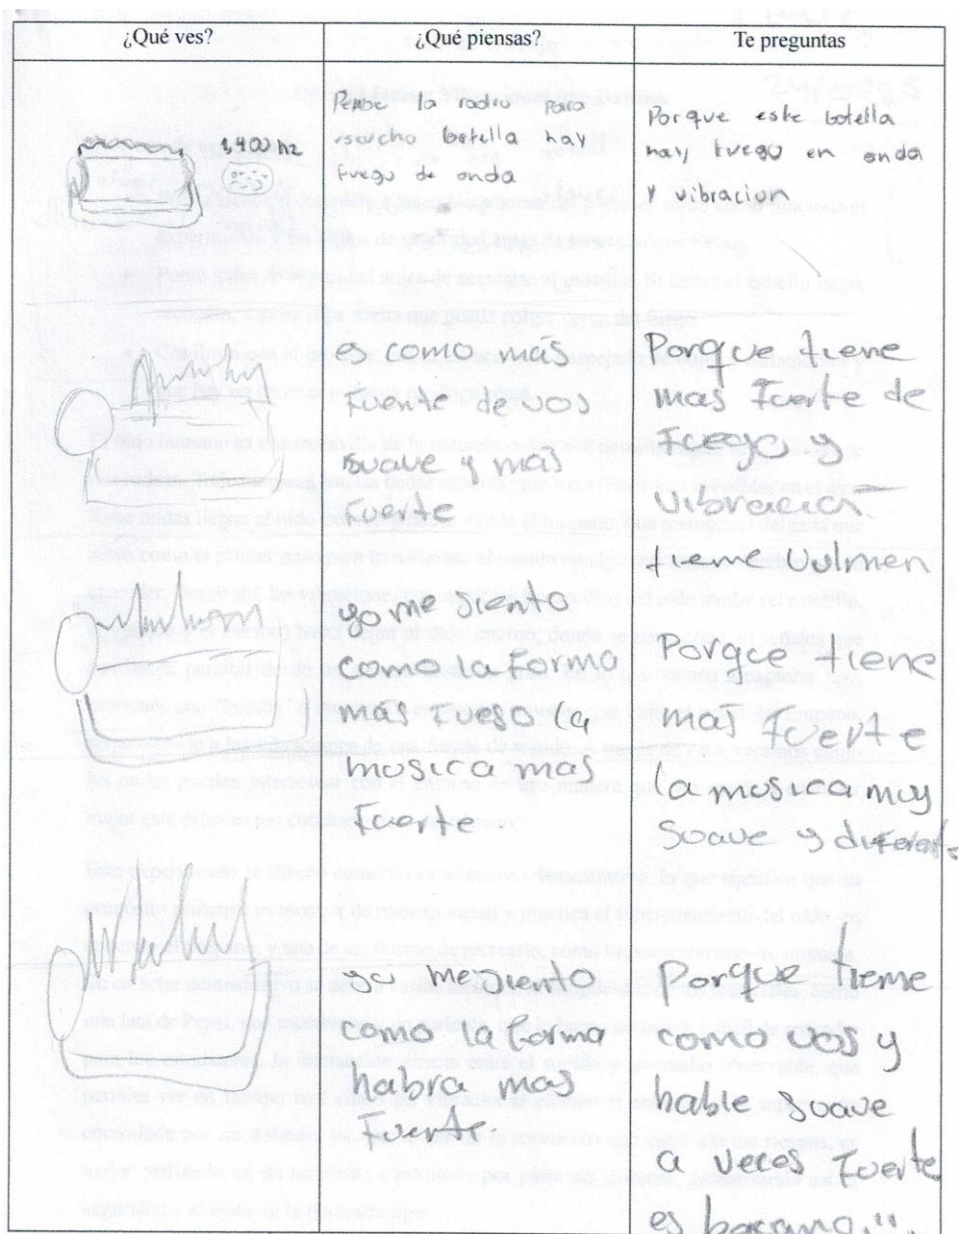 ¿Qué ves?
¿Qué piensas?
Te preguntas
1,400 hz
la radio para
escucho botella hay
fuego de onda
Porque este botella
hay fuego en onda
y vibracion
es como más
fuente de vos
suave y más
fuerte
Porque tiene
mas fuerte de
fuego y
vibración
tiene Wolmen
yo me siento
como la forma
más fuego la
mosica mas
fuerte.
Porqce tiene
mas fuerte
la mosica muy
suave y diferente
me siento
como la forma
habra mas
fuerte.
Porque tieme
como vos y
hable suave
a veces fuerte
es bacano.